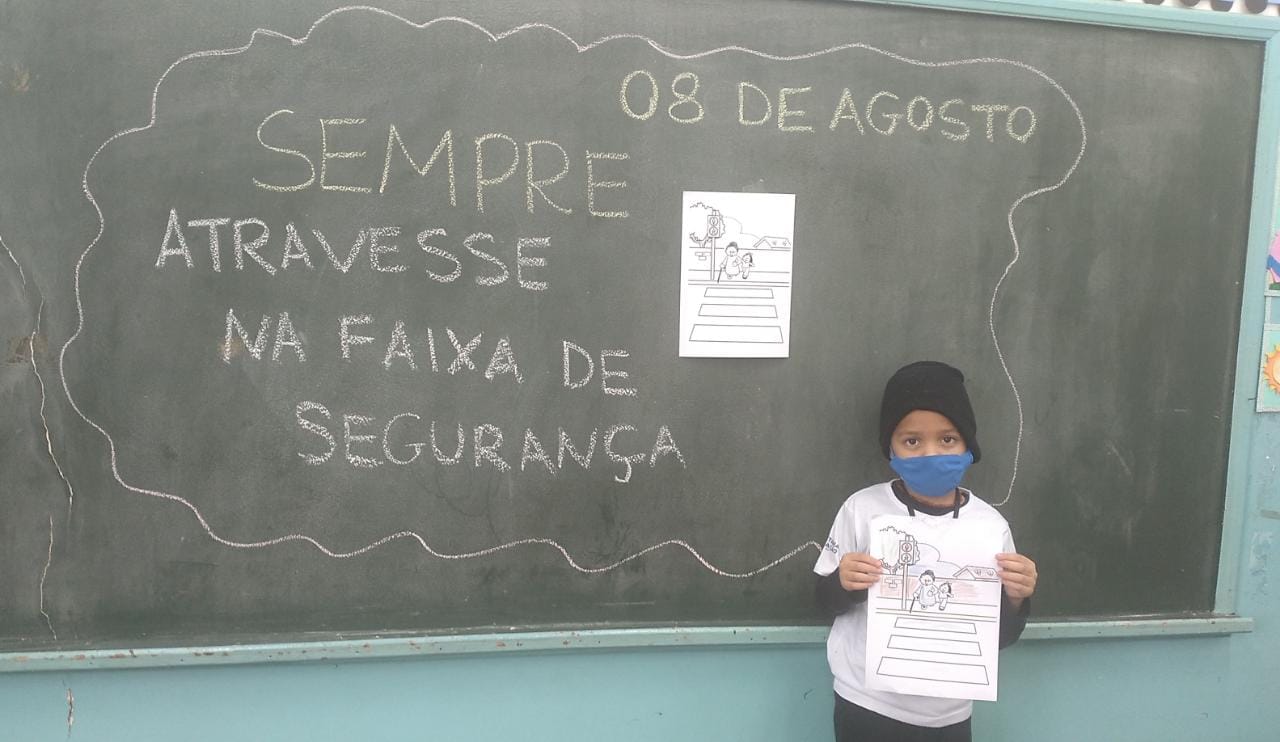 08 DE AGOSTO
SEMPRE
ATRAVESSE
NA FAIXA DE
SEGURANÇA